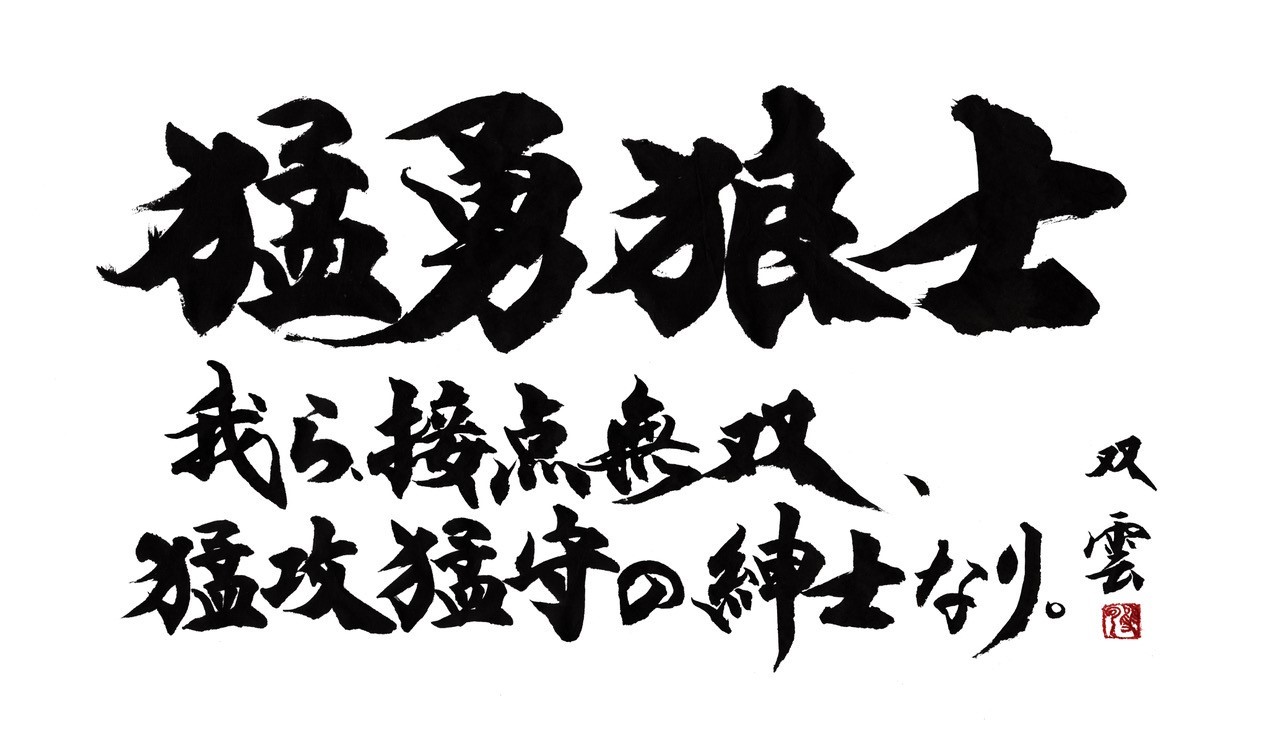 猛勇狼士
我ら接点無双、
猛攻猛守の紳士なり。
双雲